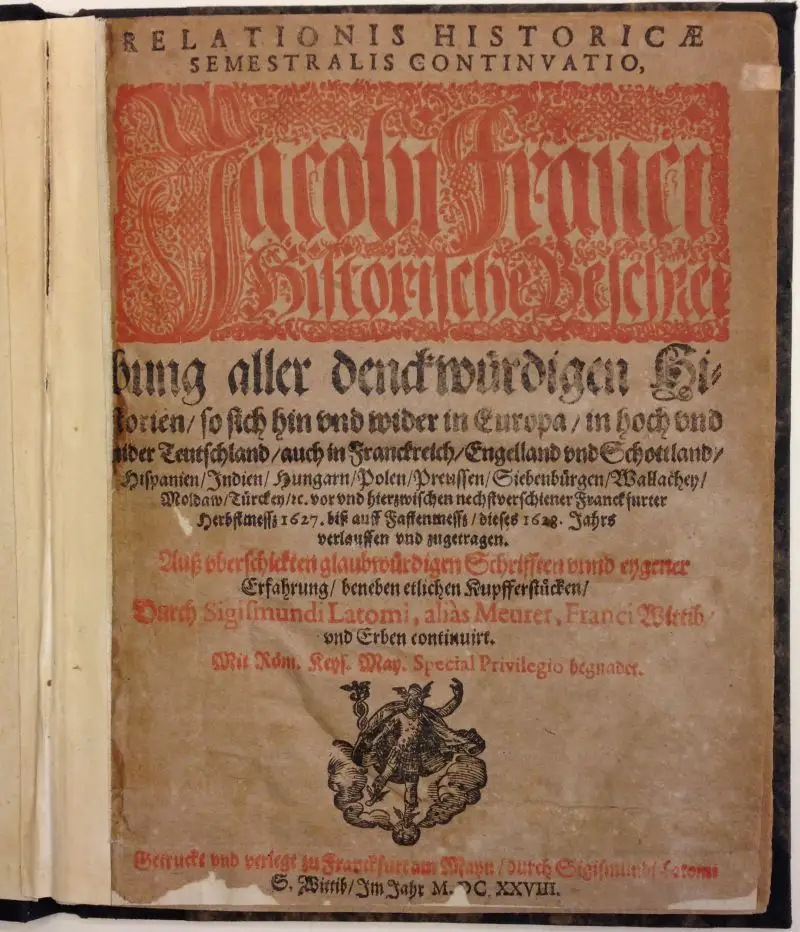 RELATIONIS HISTORICÆ
SEMESTRALIS CONTINVATIO,
Jacobi Franci
Historische Beschrei
bung aller denckwürdigen Hi-
storien/ so sich hin vnd wider in Europa/ in hoch vnd
nider Teutschland/ auch in Franckreich/ Engelland vnd Schottland/
Hispanien/ Indien/ Hungarn/ Polen/ Preussen/ Siebenbürgen/ Wallachey/
Moldaw/ Türckey/ ꝛc. vor vnd hierzwischen nechstverschiener Franckfurter
Herbstmeß 1627. biß auff Fastenmeß/ dieses 1628. Jahrs
verlauffen vnd zugetragen.
Auß vberschickten glaubwürdigen Schrifften vnnd eygener
Erfahrung/ beneben etlichen Kupfferstücken/
Durch Sigismundi Latomi, aliàs Meurer, Franci Wittib/
vnd Erben continuirt.
Mit Röm. Keys. May. Special Privilegio begnadet.
Getruckt vnd verlegt zu Franckfurt am Mayn/ durch Sigismundi Latomi
S. Wittib/ Im Jahr M. DC. XXVIII.